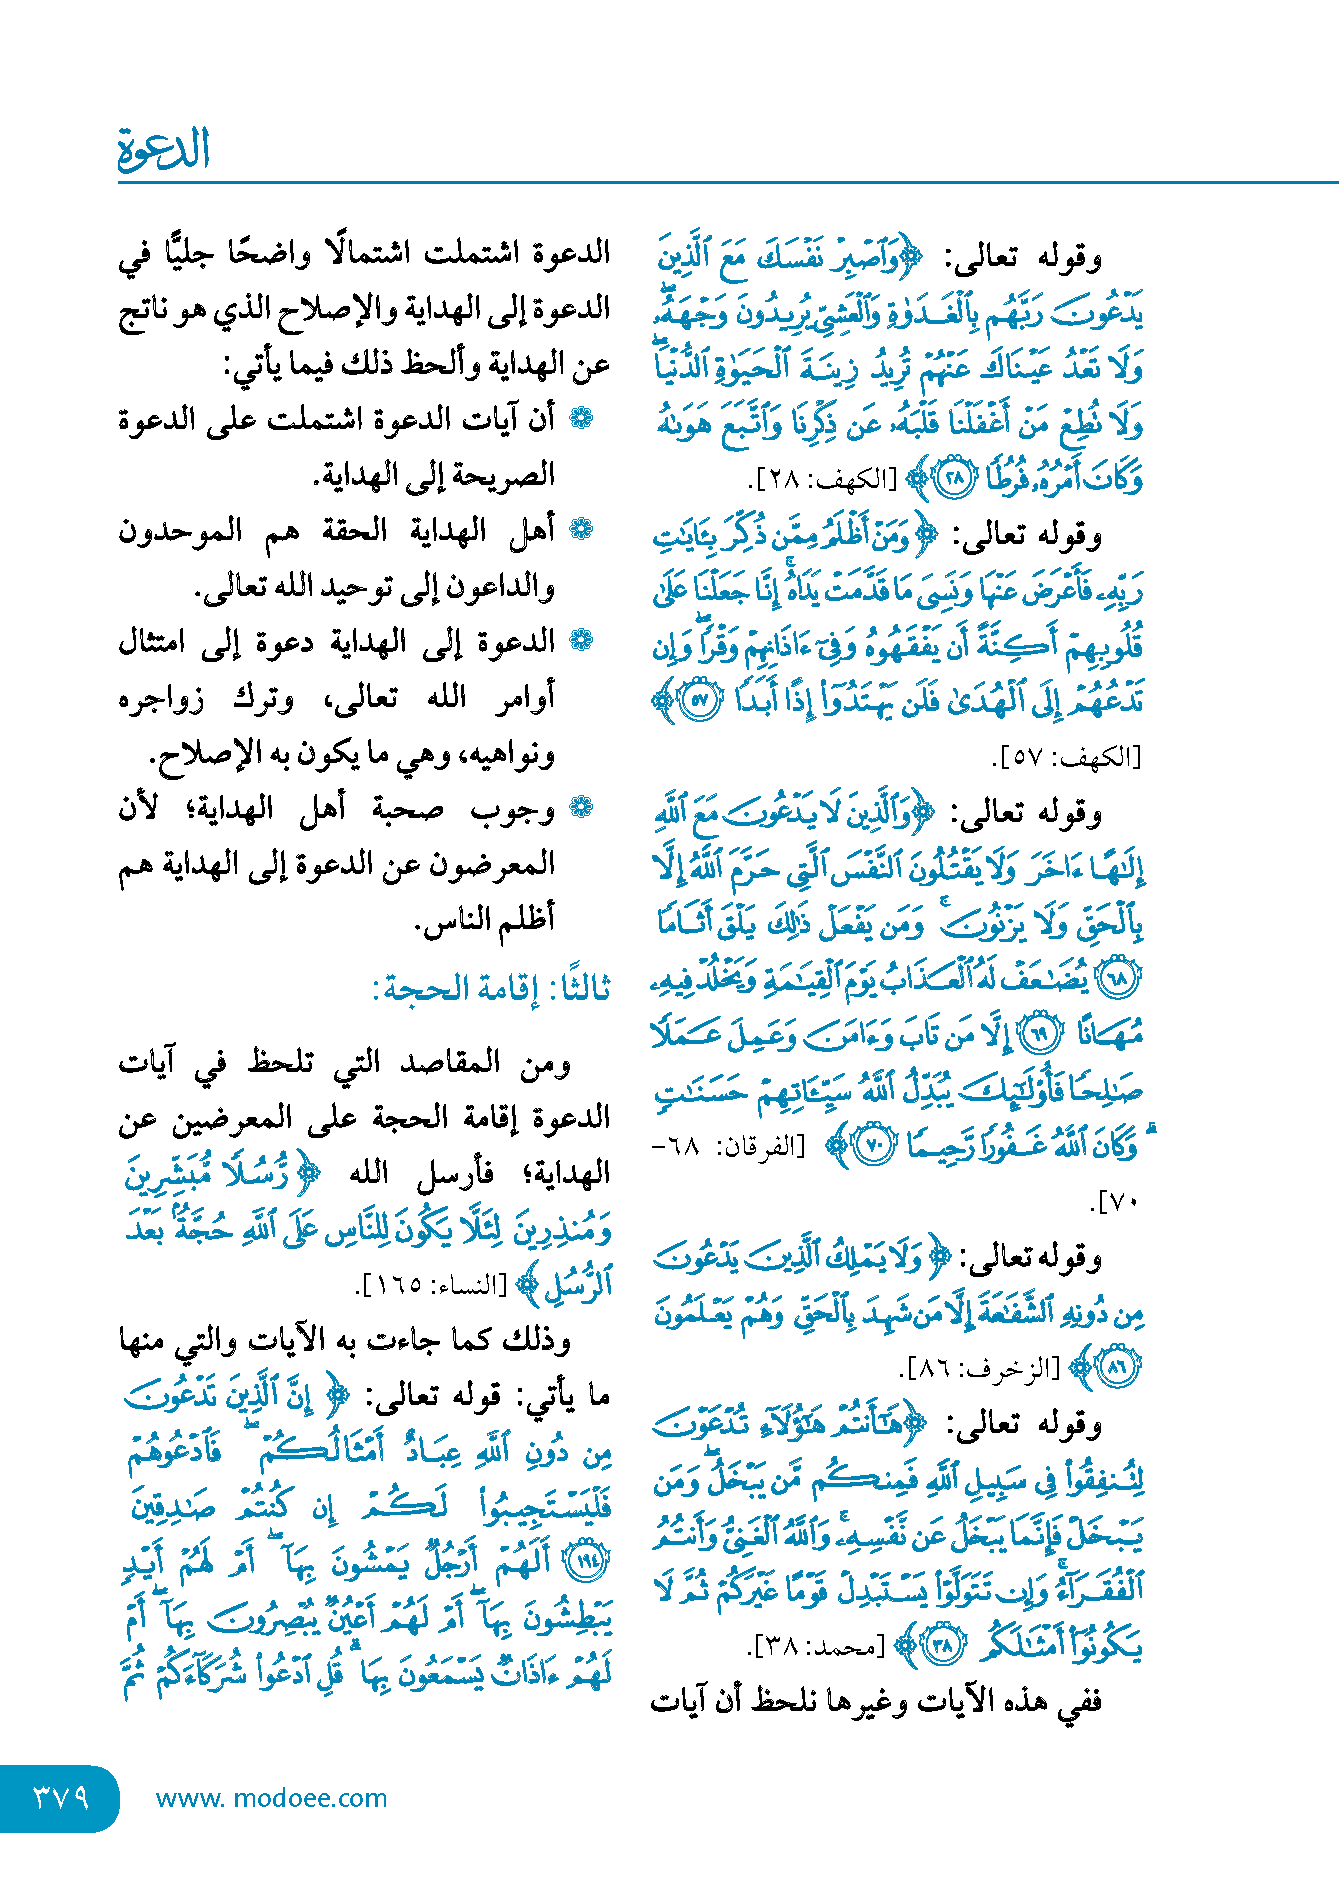 الدعوة
وقوله تعالى: ﴿وَٱصْبِرْ نَفْسَكَ مَعَ ٱلَّذِينَ
يَدْعُونَ رَبَّهُم بِٱلْغَدَوٰةِ وَٱلْعَشِيِّ يُرِيدُونَ وَجْهَهُۥ ۖ
وَلَا تَعْدُ عَيْنَاكَ عَنْهُمْ تُرِيدُ زِينَةَ ٱلْحَيَوٰةِ ٱلدُّنْيَا ۖ
وَلَا تُطِعْ مَنْ أَغْفَلْنَا قَلْبَهُۥ عَن ذِكْرِنَا وَٱتَّبَعَ هَوَىٰهُ
وَكَانَ أَمْرُهُۥ فُرُطًا ٢٨﴾ [الكهف: ٢٨].
وقوله تعالى: ﴿وَمَنْ أَظْلَمُ مِمَّن ذُكِّرَ بِـَٔايَٰتِ
رَبِّهِۦ فَأَعْرَضَ عَنْهَا وَنَسِيَ مَا قَدَّمَتْ يَدَاهُ ۚ إِنَّا جَعَلْنَا عَلَىٰ
قُلُوبِهِمْ أَكِنَّةً أَن يَفْقَهُوهُ وَفِىٓ ءَاذَانِهِمْ وَقْرًا ۖ وَإِن
تَدْعُهُمْ إِلَى ٱلْهُدَىٰ فَلَن يَهْتَدُوٓا۟ إِذًا أَبَدًا ٥٧﴾
[الكهف: ٥٧].
وقوله تعالى: ﴿وَٱلَّذِينَ لَا يَدْعُونَ مَعَ ٱللَّهِ
إِلَٰهًا ءَاخَرَ وَلَا يَقْتُلُونَ ٱلنَّفْسَ ٱلَّتِى حَرَّمَ ٱللَّهُ إِلَّا
بِٱلْحَقِّ وَلَا يَزْنُونَ ۚ وَمَن يَفْعَلْ ذَٰلِكَ يَلْقَ أَثَامًا
٦٨ يُضَٰعَفْ لَهُ ٱلْعَذَابُ يَوْمَ ٱلْقِيَٰمَةِ وَيَخْلُدْ فِيهِۦ
مُهَانًا ٦٩ إِلَّا مَن تَابَ وَءَامَنَ وَعَمِلَ عَمَلًا
صَٰلِحًا فَأُو۟لَٰٓئِكَ يُبَدِّلُ ٱللَّهُ سَيِّـَٔاتِهِمْ حَسَنَٰتٍ
ۗ وَكَانَ ٱللَّهُ غَفُورًا رَّحِيمًا ٧٠﴾ [الفرقان: ٦٨-
٧٠].
وقوله تعالى: ﴿وَلَا يَمْلِكُ ٱلَّذِينَ يَدْعُونَ
مِن دُونِهِ ٱلشَّفَٰعَةَ إِلَّا مَن شَهِدَ بِٱلْحَقِّ وَهُمْ يَعْلَمُونَ
٨٦﴾ [الزخرف: ٨٦].
وقوله تعالى: ﴿هَٰٓأَنتُمْ هَٰٓؤُلَآءِ تُدْعَوْنَ
لِتُنفِقُوا۟ فِى سَبِيلِ ٱللَّهِ فَمِنكُم مَّن يَبْخَلُ ۖ وَمَن
يَبْخَلْ فَإِنَّمَا يَبْخَلُ عَن نَّفْسِهِۦ ۚ وَٱللَّهُ ٱلْغَنِىُّ وَأَنتُمُ
ٱلْفُقَرَآءُ ۚ وَإِن تَتَوَلَّوْا۟ يَسْتَبْدِلْ قَوْمًا غَيْرَكُمْ ثُمَّ لَا
يَكُونُوٓا۟ أَمْثَٰلَكُم ٣٨﴾ [محمد: ٣٨].
ففي هذه الآيات وغيرها نلحظ أن آيات
الدعوة اشتملت اشتمالًا واضحًا جليًّا في
الدعوة إلى الهداية والإصلاح الذي هو ناتج
عن الهداية وألحظ ذلك فيما يأتي:
❁ أن آيات الدعوة اشتملت على الدعوة
الصريحة إلى الهداية.
❁ أهل الهداية الحقة هم الموحدون
والداعون إلى توحيد الله تعالى.
❁ الدعوة إلى الهداية دعوة إلى امتثال
أوامر الله تعالى، وترك زواجره
ونواهيه، وهي ما يكون به الإصلاح.
❁ وجوب صحبة أهل الهداية؛ لأن
المعرضون عن الدعوة إلى الهداية هم
أظلم الناس.
ثالثًا: إقامة الحجة:
ومن المقاصد التي تلحظ في آيات
الدعوة إقامة الحجة على المعرضين عن
الهداية؛ فأرسل الله ﴿رُّسُلًا مُّبَشِّرِينَ
وَمُنذِرِينَ لِئَلَّا يَكُونَ لِلنَّاسِ عَلَى ٱللَّهِ حُجَّةٌۢ بَعْدَ
ٱلرُّسُلِ﴾ [النساء: ١٦٥].
وذلك كما جاءت به الآيات والتي منها
ما يأتي: قوله تعالى: ﴿إِنَّ ٱلَّذِينَ تَدْعُونَ
مِن دُونِ ٱللَّهِ عِبَادٌ أَمْثَالُكُمْ ۖ فَٱدْعُوهُمْ
فَلْيَسْتَجِيبُوا۟ لَكُمْ إِن كُنتُمْ صَٰدِقِينَ
١٩٤ أَلَهُمْ أَرْجُلٌ يَمْشُونَ بِهَآ ۖ أَمْ لَهُمْ أَيْدٍ
يَبْطِشُونَ بِهَآ ۖ أَمْ لَهُمْ أَعْيُنٌ يُبْصِرُونَ بِهَآ ۖ أَمْ
لَهُمْ ءَاذَانٌ يَسْمَعُونَ بِهَا ۗ قُلِ ٱدْعُوا۟ شُرَكَآءَكُمْ ثُمَّ
www. modoee.com
٣٧٩